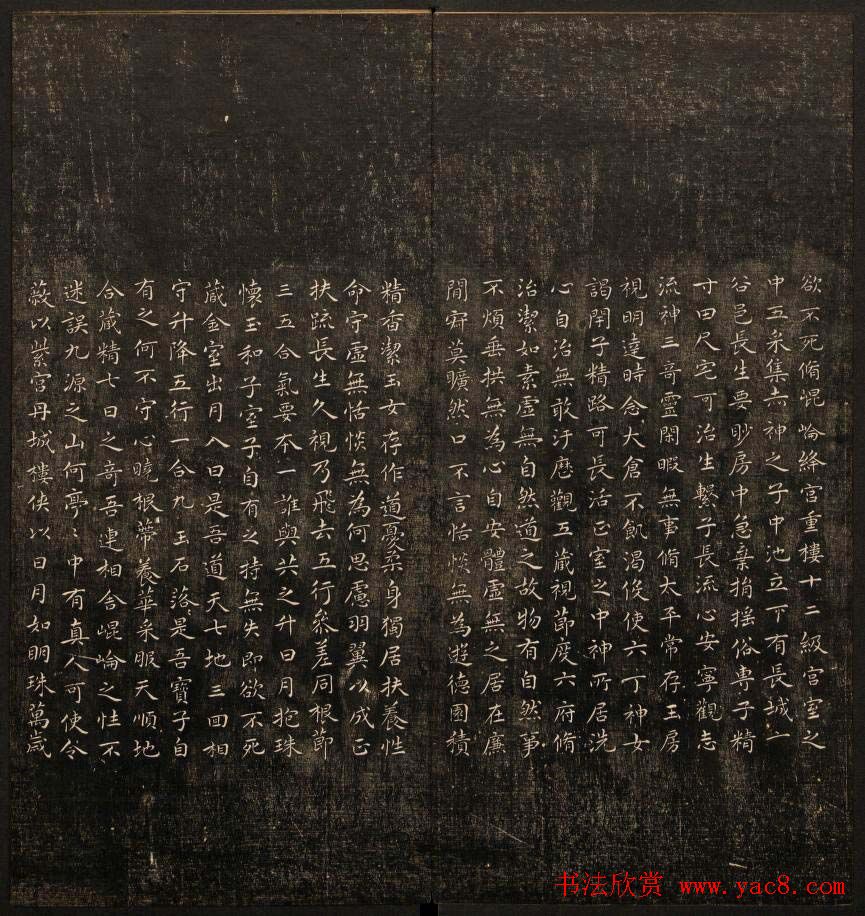 欲不死脩崐崘絳宮重樓十二級宮室之
中五采集赤神之子中池立下有長城一
谷邑長生要眇房中急棄捐搖俗專子精
寸田尺宅可治生繫子長流心安寧觀志
流神三奇靈閑暇無事脩太平常存玉房
視明達時念大倉不飢渴伇使六丁神女
謁閇子精路可長活正室之中神所居洗
心自治無敢汙歷觀五藏視節度六府脩
治潔如素虛無自然道之故物有自然事
不煩垂拱無為心自安體虛無之居在廉
間寂莫曠然口不言恬惔無為遊德園積
精香潔玉女存作道憂柔身獨居扶養性
命守虛無恬惔無為何思慮羽翼以成正
扶踈長生久視乃飛去五行參差同根節
三五合氣要本一誰與共之升日月抱珠
懷玉和子室子自有之持無失即欲不死
藏金室出月入日是吾道天七地三回相
守升降五行一合九玉石落是吾寶子自
有之何不守心曉根蔕養華采服天順地
合藏精七日之奇吾連相舍崐崘之性不
迷誤九源之山何亭〻中有真人可使令
蔽以紫宮丹城樓俠以日月如明珠萬歲
书法欣赏 www.yac8.com